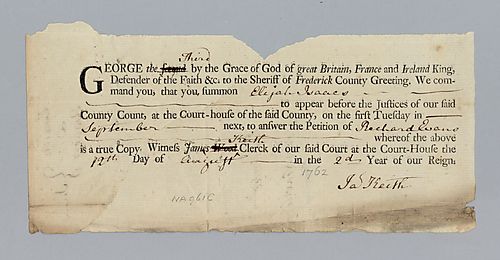 Third
GEORGE the second by the Grace of God of great Britain, France and Ireland King,
Defender of the Faith &c. to the Sheriff of Frederick County Greeting, We com-
mand you, that you, summon Elijah Isaacs
to appear before the Justices of our said
County Count, at the Court-house of the said County, on the first Tuesday in
September next, to answer the Petition of Richard Evans
Keith whereof the above
is a true Copy. Witness James Wood Clerck of our said Court at the Court-House the
Day of August in the 2d Year of our Reign.
1762
Ja Keith